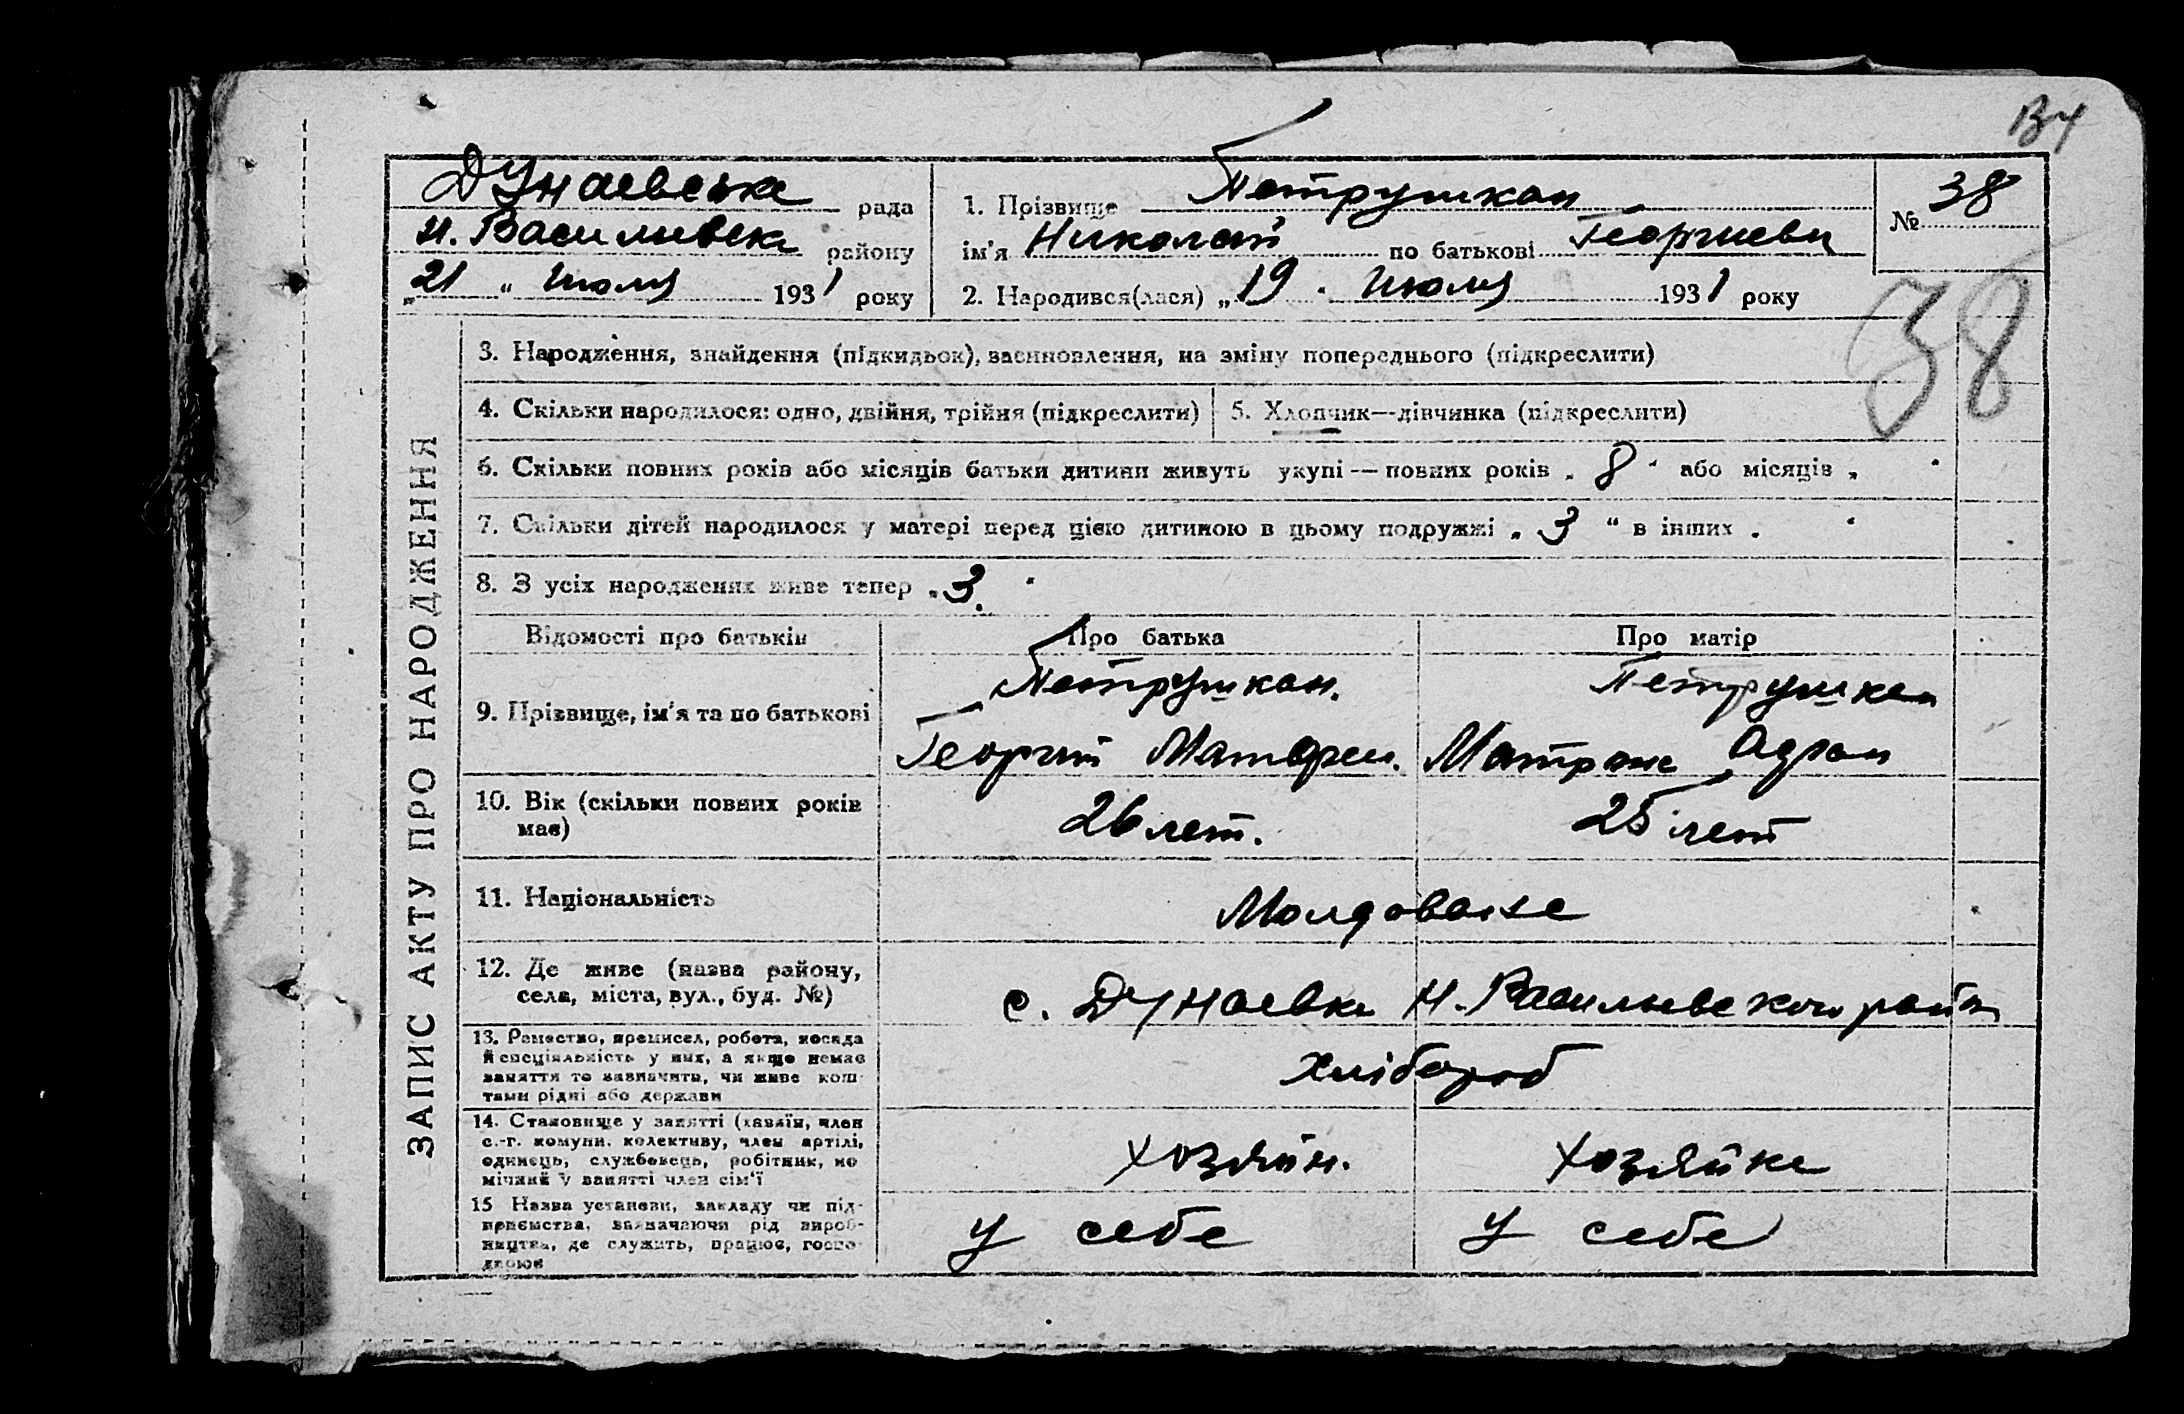 Дунаевська рада
Н. Васильевск району
„21“ Июля 1931 року
1. Прізвище Петрушкан
ім'я Николай по батькові Георгиеви
2. Народився(лася) „19" Июля 1931 року
№ 38
38
ЗАПИС АКТУ ПРО НАРОДЖЕННЯ
3. Народження, знайдення (підкидьок), засиновлення, на зміну попереднього (підкреслити)
4. Скільки народилося: одно, двійня, трійня (підкреслити)
5. Хлопчик—дівчинка (підкреслити)
6. Скільки повних років або місяців батьки дитини живуть укупі — повних років „8" або місяців „ "
7. Скільки дітей народилося у матері перед цією дитиною в цьому подружжі „3“ в інших „ "
8. З усіх народжених живе тепер „3"
Відомості про батьків
Про батька
Про матір
9. Прізвище, ім'я та по батькові
Петрушкан.
Георгий Матфеи.
Петрушкан
Матрона
10. Вік (скільки повних років
має)
26 лет.
25 лет
11. Національність
Молдован
12. Де живе (назва району,
села, міста, вул., буд. №)
с. Дунаевка Н. Васильевского район
13. Ремество, премисел, робота, посада
й спеціяльність у них, а якщо немає
заняття то зазначити, чи живе кош-
тами рідні або держави
Хлібороб
14. Становище у занятті (хазяїн, член
с.-г. комуни, колективу, член артілі,
одинець, службовець, робітник, по
мічний у занятті член сім'ї
хозяин.
хозяйка
15 Назва установи, закладу чи під-
приємства, зазначаючи рід вироб-
ництва, де служить, працює, госпо-
дарює
у себе
у себе